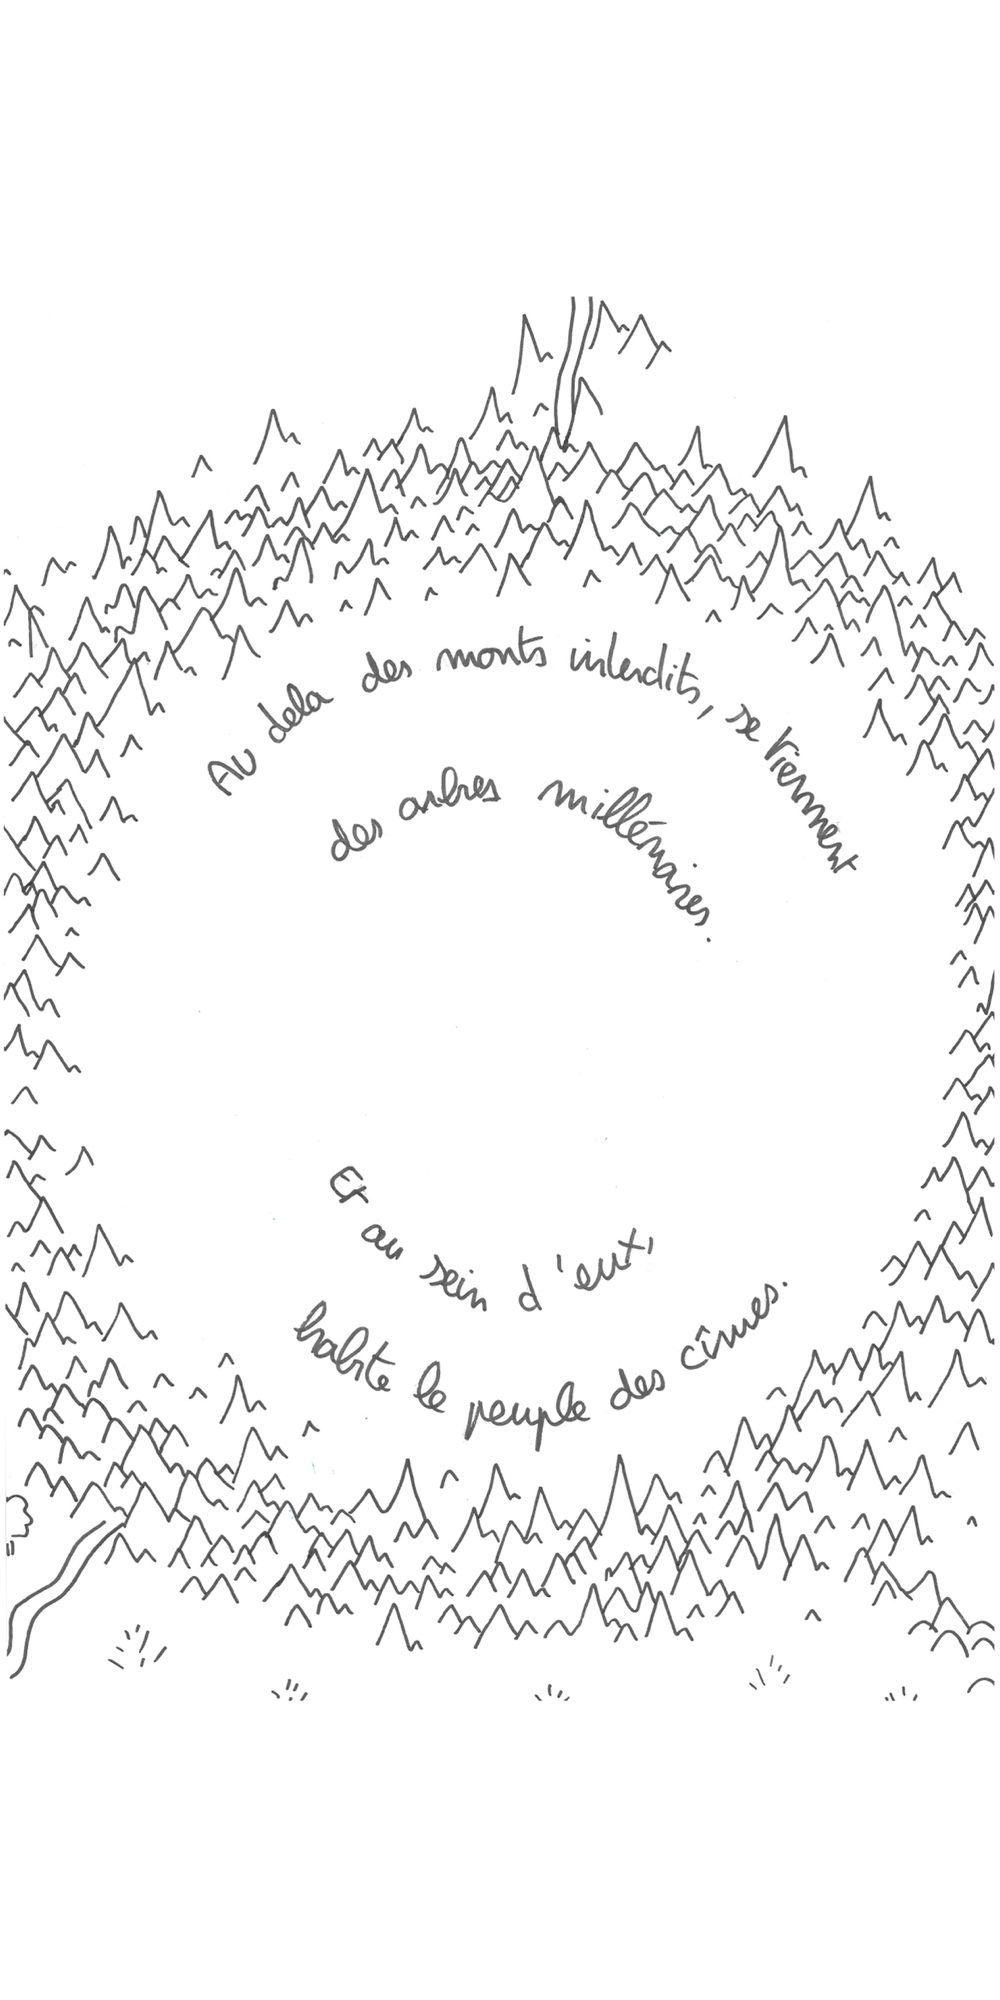 Au dela des monts interdits, se tiennent
des arbres millénaires.
Et au sein d'eux,
habite le peuple des cîmes.